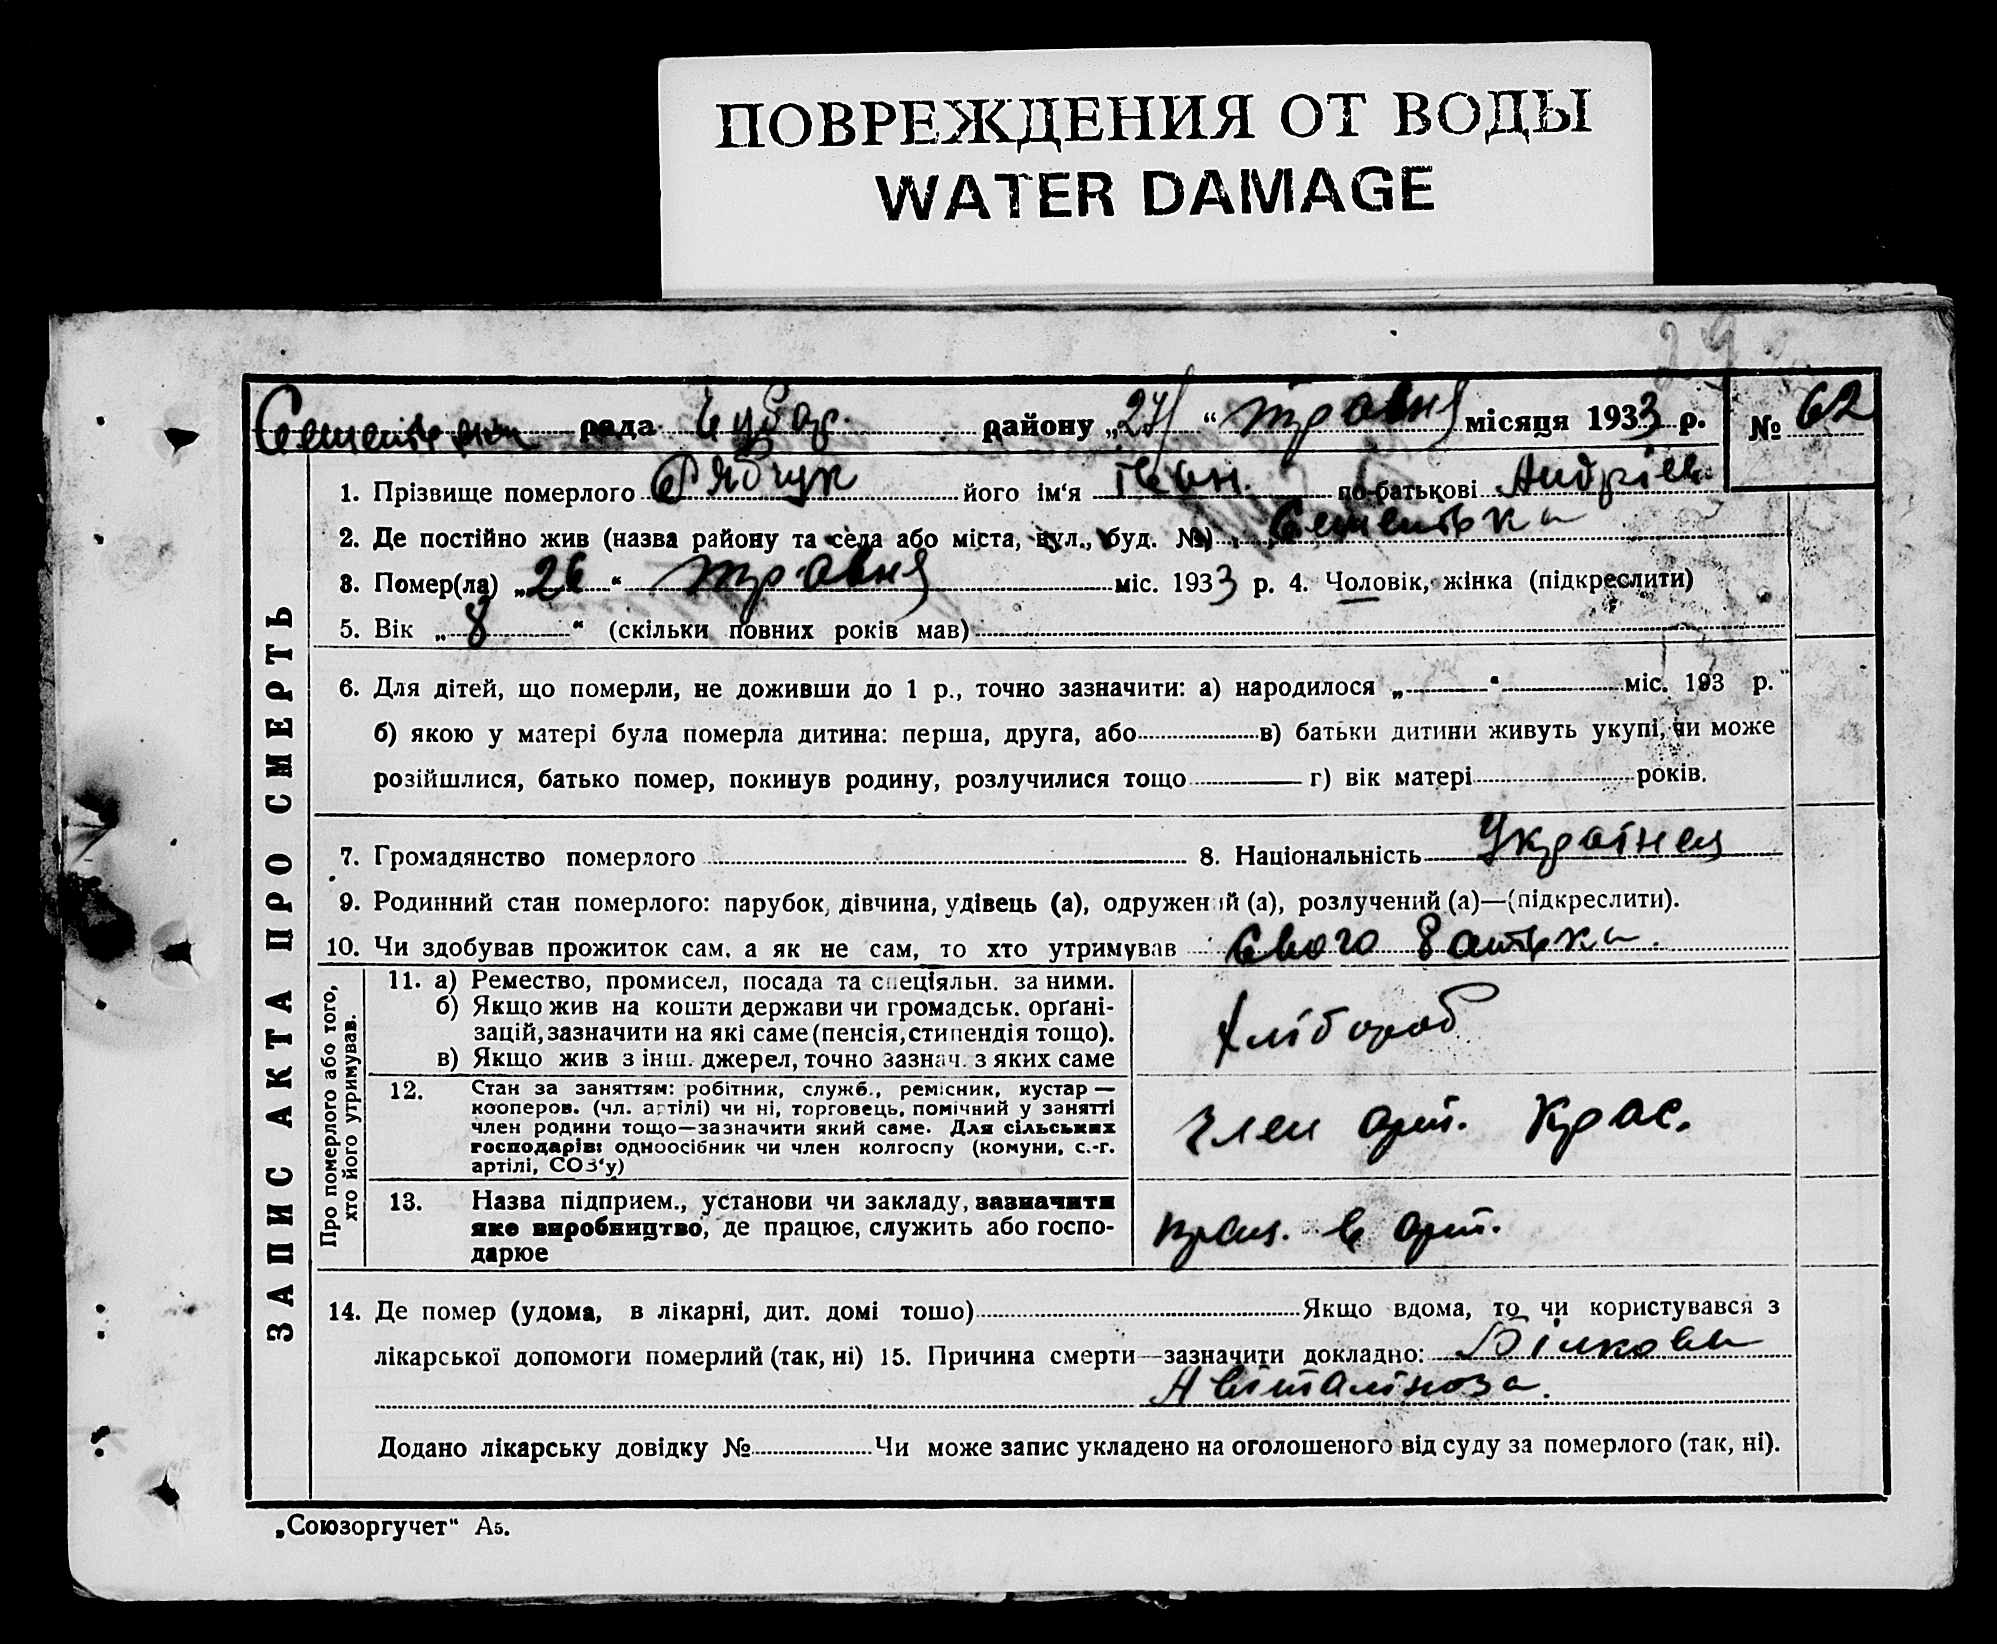 ПОВРЕЖДЕНИЯ ОТ ВОДЫ
WATER DAMAGE
29
рада Чубар. району „27“ травня місяця 1933 р. № 62
1. Прізвище померлого Рябчук його ім‘я Іван. по-батькові Андрієв.
2. Де постійно жив (назва району та села або міста, вул., буд. №)
3. Помер(ла) „26“ травня міс. 1933 р. 4. Чоловік, жінка (підкреслити)
5. Вік „8“ (скільки повних років мав)
6. Для дітей, що померли, не доживши до 1 р., точно зазначити: а) народилося „ “ міс. 193 р.
б) якою у матері була померла дитина: перша, друга, або в) батьки дитини живуть укупі, чи може
розійшлися, батько помер, покинув родину, розлучилися тощо г) вік матері років.
7. Громадянство померлого 8. Національність Українец
9. Родинний стан померлого: парубок, дівчина, удівець (а), одружений (а), розлучений (а)—(підкреслити).
10. Чи здобував прожиток сам, а як не сам, то хто утримував Свого батька.
ЗАПИС АКТА ПРО СМЕРТЬ
Про померлого або того,
хто його утримував.
11. а) Ремество, промисел, посада та спеціяльн. за ними.
б) Якщо жив на кошти держави чи громадськ. орґані-
зацій, зазначити на які саме (пенсія, стипендія тощо).
в) Якщо жив з інш. джерел, точно зазнач. з яких саме
Хлібороб
12. Стан за заняттям: робітник, служб., ремісник, кустар —
кооперов. (чл. артілі) чи ні, торговець, помічний у занятті
член родини тощо—зазначити який саме. Для сільських
господарів: одноосібник чи член колгоспу (комуни, с.-г.
артілі, СОЗ‘у)
Член арт. Крас.
13. Назва підприєм., установи чи закладу, зазначити
яке виробництво, де працює, служить або госпо-
дарює
прац. в арт.
14. Де помер (удома, в лікарні, дит. домі тошо) Якщо вдома, то чи користувався з
лікарської допомоги померлий (так, ні) 15. Причина смерти—зазначити докладно: Білкови
Авіталіноза.
Додано лікарську довідку № Чи може запис укладено на оголошеного від суду за померлого (так, ні).
„Союзоргучет“ А5.